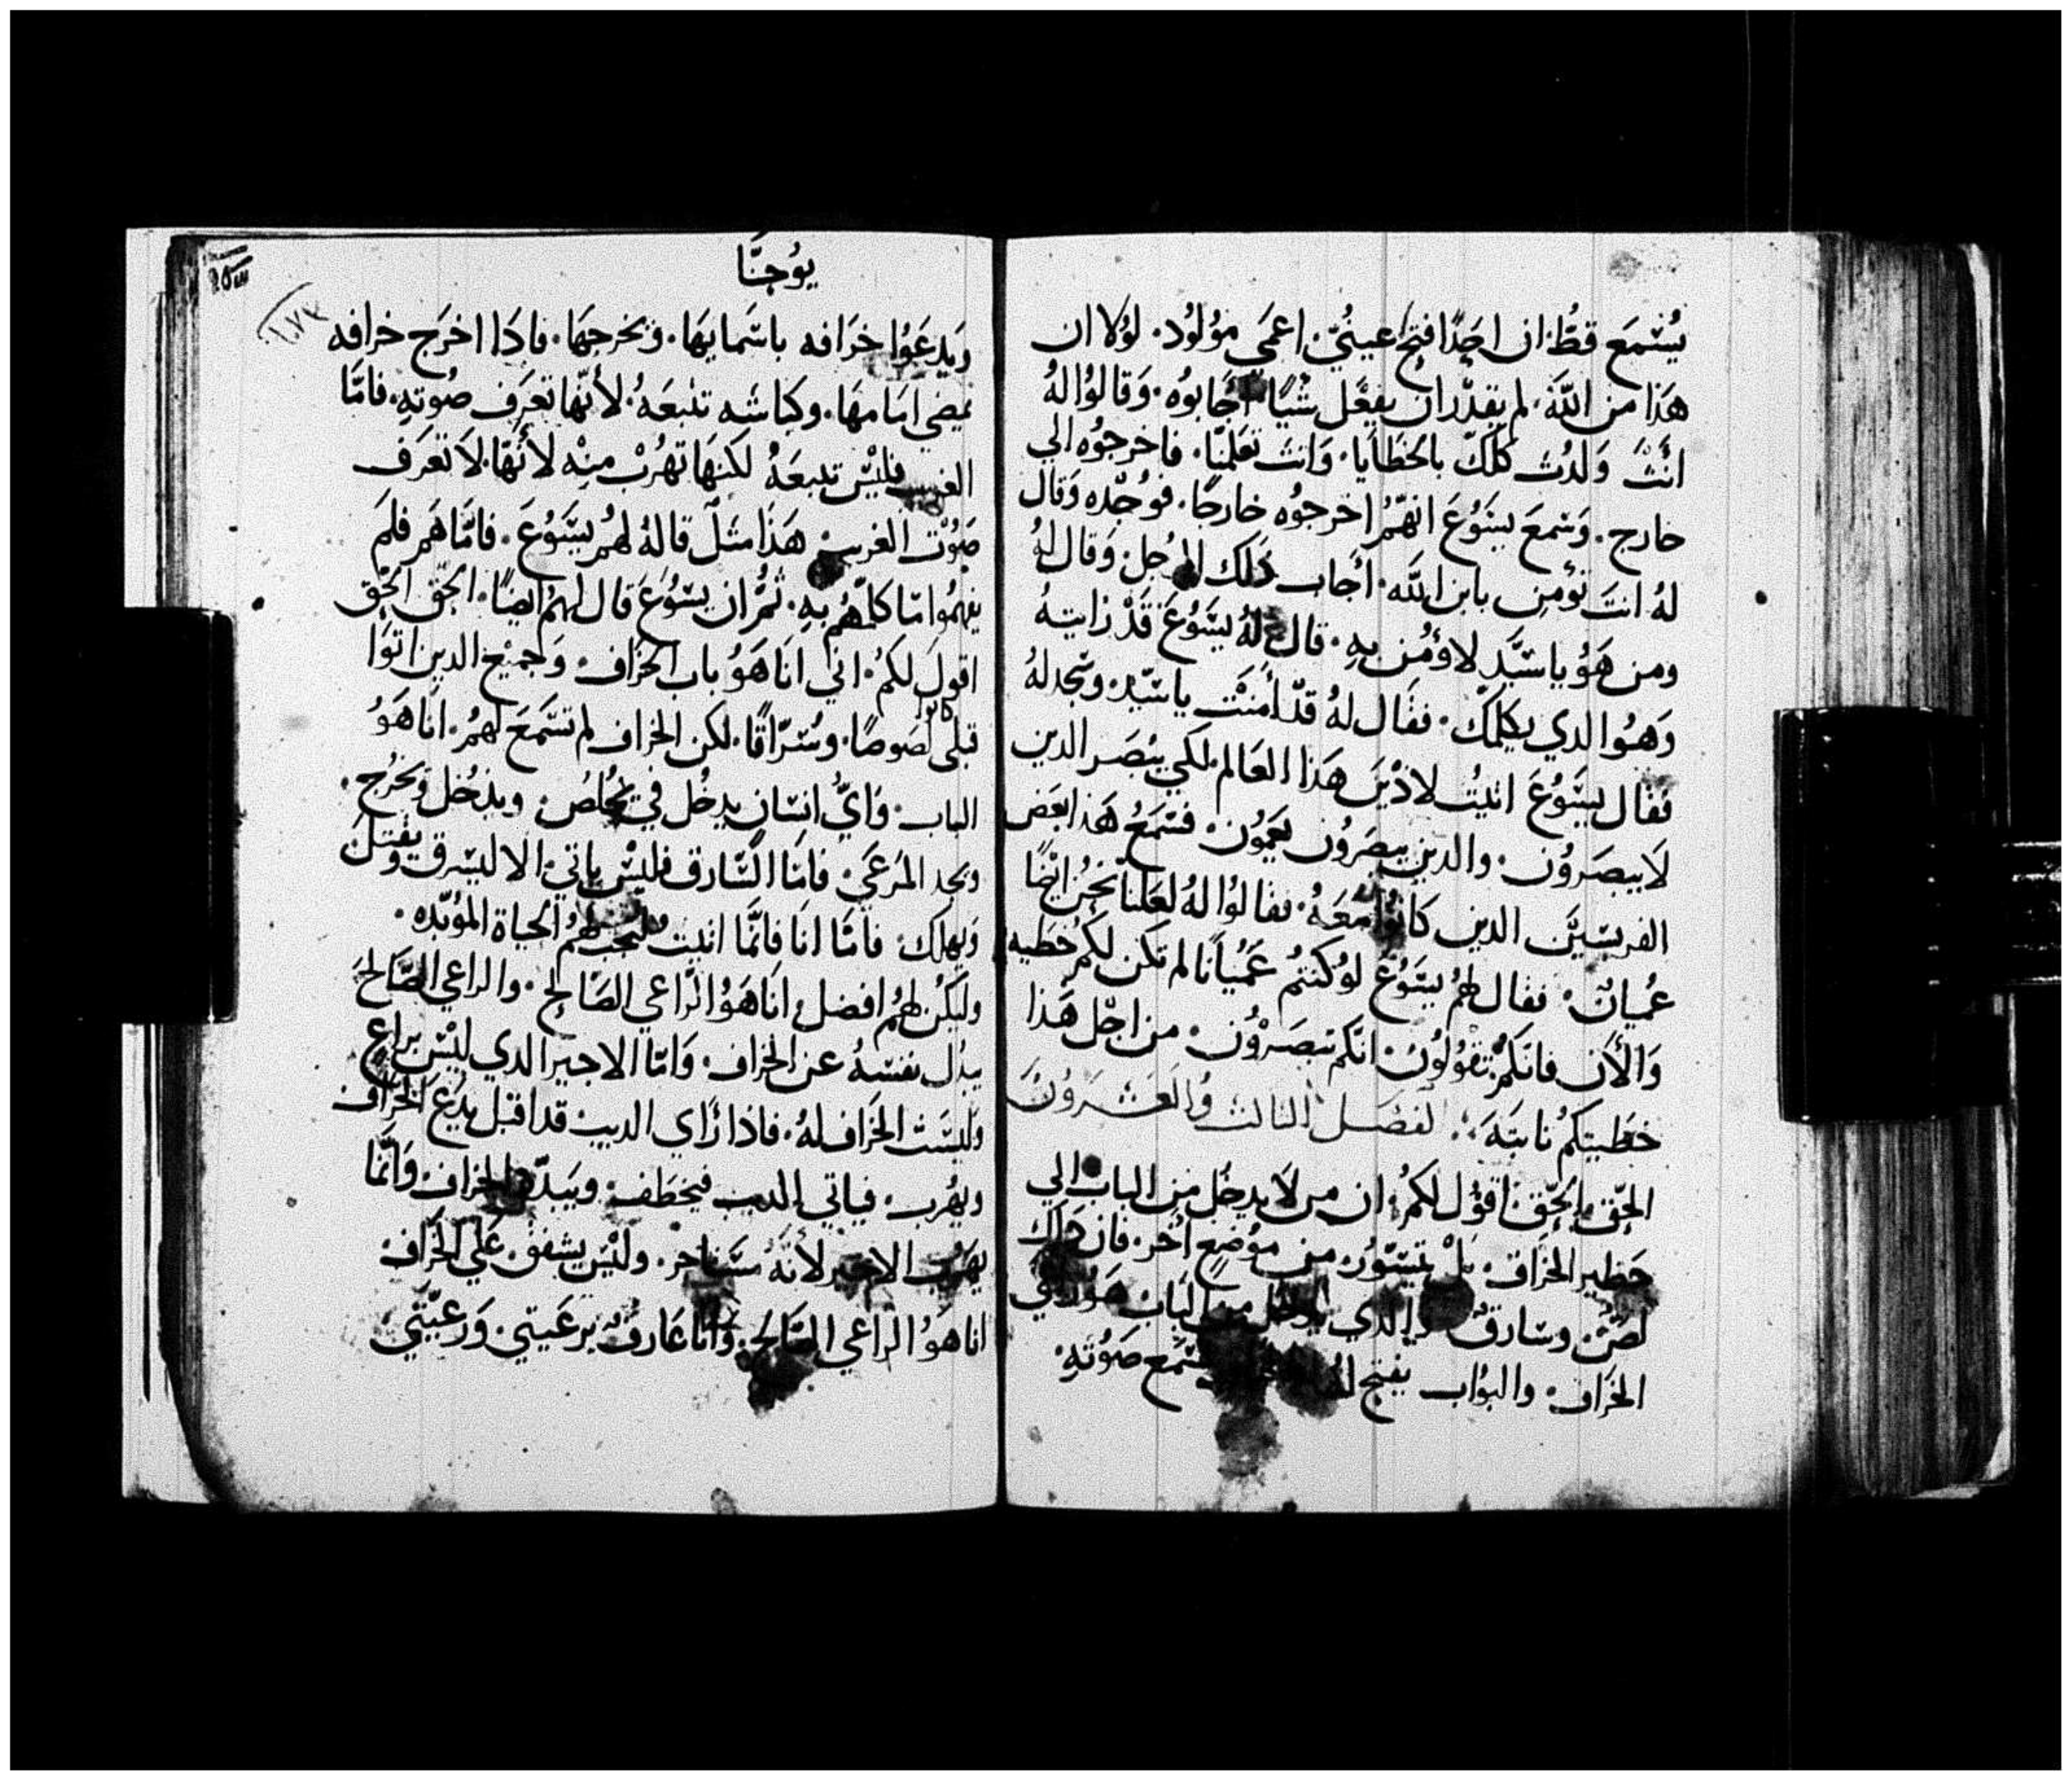 يُسْمَعَ قطُّ ان احدًا فتح عينيّ اعمَى مَوُلوُد. لوُلا ان
هَذا من اللّه. لم يقدر ان يفعَل شيًا أجَابوُه. وَقالوُا لهُ
انتَ وَلدُت كلكَّ بالخطَايَا. وَانتَ تعَلمنا. فاخرجوُه الي
خارج. وَسَمعَ يسَوُعَ انهُّم اخرجوُه خارجًا. فوُجده وَقال
لهُ انتَ تؤمن بابن اللّه. أجَاب ذلك الرجل. وَقال لهُ
ومن هَوُ ياسَيّد لاؤمُن بهِ. قال لهُ يسَوُعَ قدْ رَايتهُ
وَهوُا لدي يكلمكَ. فقال لهُ قدّ أمنت ياسَيّد. وسَجد لهُ
فقال يسَوُعَ اتيتُ لادْينَ هَذا العَالم. لكي يبُصَر الدين
لاَيبصَروُن. والدين يبصَروُن يعَموُن. فسَمعَ هَذا بعَض
الفريسَيَّن الدين كانوُا معَهُ. فقالوُا لهُ لعَلنا نحَنُ ايضًا
عُميانٌ. فقال لهُم يسَوُعَ لوُ كنتمُ عَمُيانًا لم تكن لكمُ خطيه
وَالأن فانكَمُ تقوُلوُن. انكَم تبصَروُن. من اجل هَذا
خطيتكمُ ثابتَه. الفصَل الثالث وُالعَشروُن
الحَق الحَق اقوُل لكمُ. ان من لاَ يدخل من الباب الي
حَظير الخراف. بلْ يتسَوّر من موُضعٍ اخُر. فان ذلك
لصٌ. وسَارقٌ والدي يدخل من البَاب هَوُ راعي
الخراف. والبوُاب يفتح لهُ تسَمَع صَوُتهِ.
يوُحنَّا
وَيدعَوُا خرَافه باسَمايهَا. وَيخرجهَا. فادَا اخرَج خرافه
يمضي امَامهَا. وكباشه تتبعَهُ. لأنهّا تعَرف صُوتهِ. فامّا
الغريب فليْسَ تتبعَهُ لكنهَا تهَرُبْ منهْ لأنهّا لاَ تعَرف
صَوُت الغريب. هَذا مثلٌ قالهُ لهمُ يسَوُعَ. فامّا هَم فلم
يفهمُوا مَا كلمّهُم بهِ. ثمُّ ان يسَوُعَ قال لهمُ ايضًا. الحَق الحَق
اقول لكمُ. اني انَا هَوُ باب الخرَاف. وَجميعَ الدين اتوَا
قبلى كانوا لصَوصًا. وسُرّاقًا. لكن الخراف لم تسَمَع لهمُ. انَا هَوُ
الباب. وَايُّ انسَان يدخُل في يخُلصُ. ويدُخل وَيخرُج.
ويجد المرَعَى. فامَا السَّارق فليْس ياتي. الا ليسَرق ويقتل
وَيهلك. فامّا انَا فانمّا اتيت لتجب لهمُ الحياة المؤبّده.
وليكُن لهُم افضل. انَا هَوُ الرَّاعي الصَالح. والراعي الصَّالح
يبدُل نفسَهُ عن الخراف. وَامّا الاجير الدي ليْس براعٍ
وليسَت الخرَاف لهُ. فاذا رَاي الديب قد اقبل يدُع الخرَاف
ويهَرب. فياتي الديب فيخطَف. وَيبدّد الخراف. وَانمَا
يهَرُب الاجير لأنهَُّ مسَتاجر. وليْسَ يشفق عَلي الخرَاف
انا هَوُ الراعي الصَالح. وَانَا عَارفٌ برعَيتي. وَرعَيتي